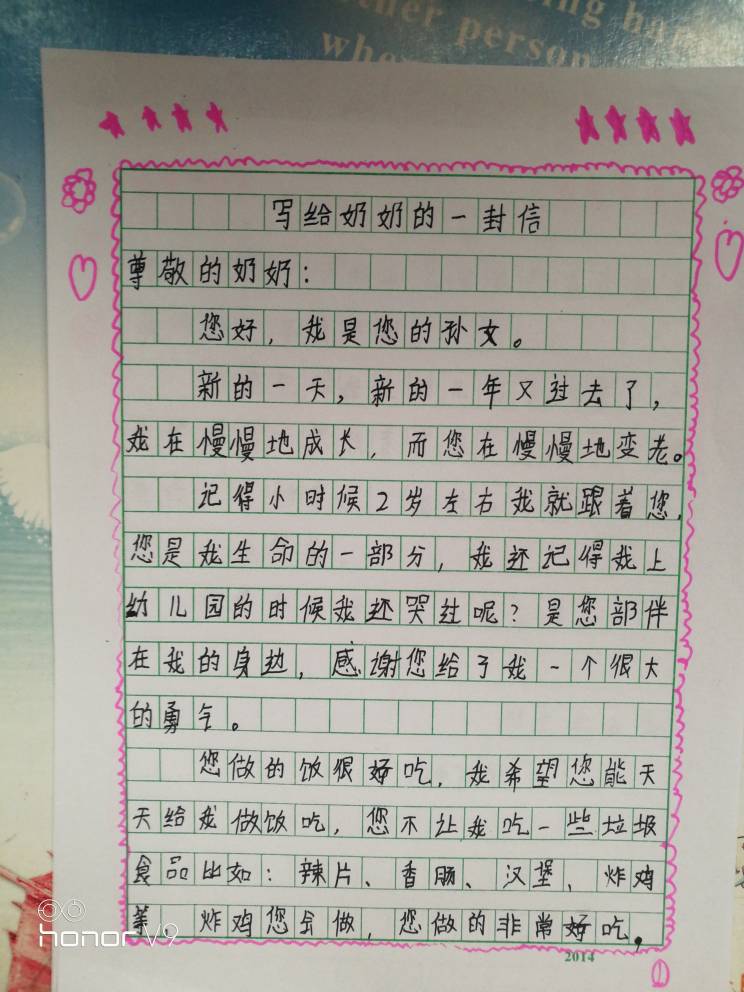 ing han
ther person
whe
写给奶奶的一封信
尊敬的奶奶：
您好，我是您的孙女。
新的一天，新的一年又过去了，
我在慢慢地成长，而您在慢慢地变老。
记得小时候2岁左右我就跟着您，
您是我生命的一部分，我还记得我上
幼儿园的时候我还哭过呢？是您部伴
在我的身边，感谢您给了我一个很大
的勇气。
您做的饭很好吃，我希望您能天
天给我做饭吃，您不让我吃一些垃圾
食品比如：辣片、香肠、汉堡、炸鸡
等，炸鸡您会做，您做的非常好吃，
2014
1
honor V9